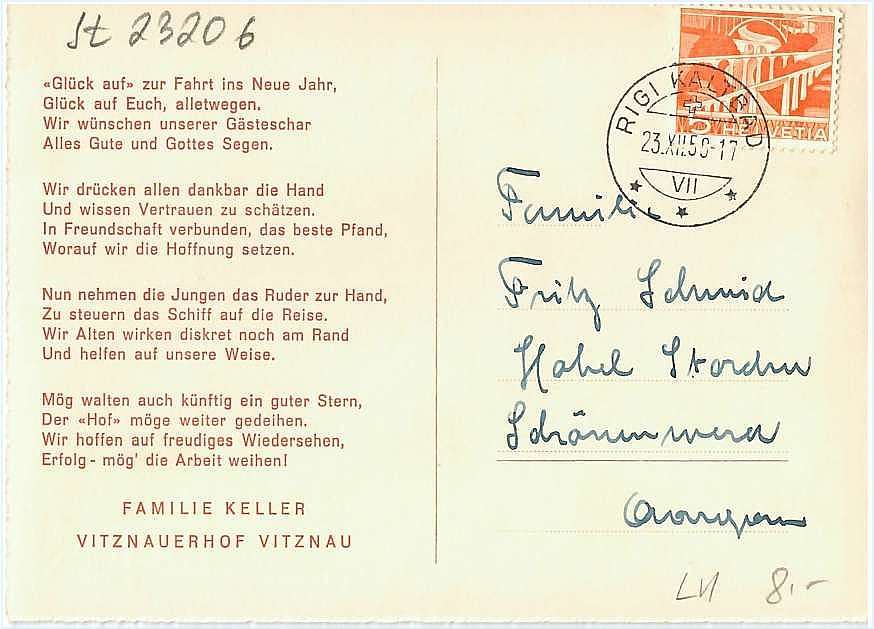 St 23206
«Glück auf» zur Fahrt ins Neue Jahr,
Glück auf Euch, alletwegen.
Wir wünschen unserer Gästeschar
Alles Gute und Gottes Segen.
Wir drücken allen dankbar die Hand
Und wissen Vertrauen zu schätzen.
In Freundschaft verbunden, das beste Pfand,
Worauf wir die Hoffnung setzen.
Nun nehmen die Jungen das Ruder zur Hand,
Zu steuern das Schiff auf die Reise.
Wir Alten wirken diskret noch am Rand
Und helfen auf unsere Weise.
Mög walten auch künftig ein guter Stern,
Der «Hof» möge weiter gedeihen.
Wir hoffen auf freudiges Wiedersehen,
Erfolg - mög' die Arbeit weihen!
FAMILIE KELLER
VITZNAUERHOF VITZNAU
5 HELVETIA
RIGI KALTBAD
23.XII.50-17
VII
Familie
Fritz Schmid
Hotel Storchen
Schönenwerd
Aargau
LU 8.-